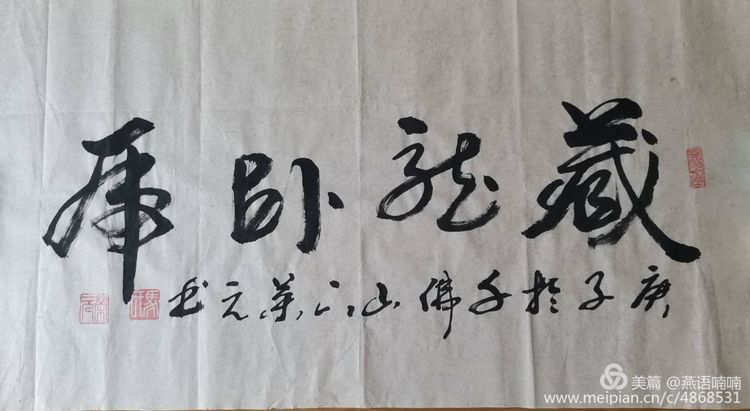 藏龙卧虎
庚子於千佛山下荣元书
美篇 @燕语喃喃
www.meipian.cn/c/4868531